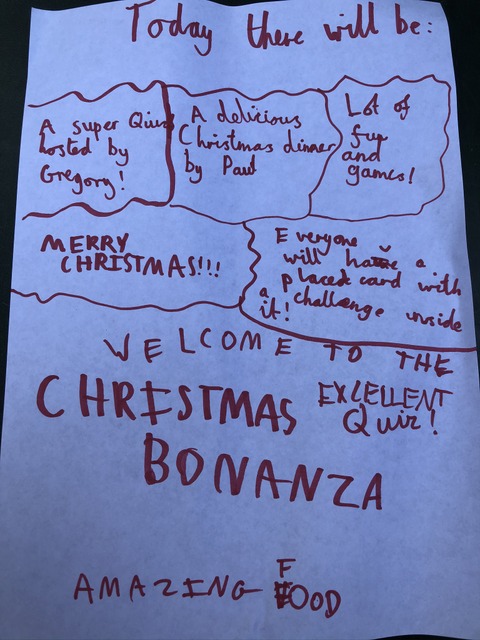 Today there will be:
A super Quiz
hosted by
Gregory!
A delicious
Christmas dinner
by Paul
Lot of
fun
and
games!
MERRY
CHRISTMAS!!!
Everyone
will have a
placed card with
a challenge inside
it!
WELCOME TO THE
CHRISTMAS
EXCELLENT
Quiz!
BONANZA
AMAZING FOOD